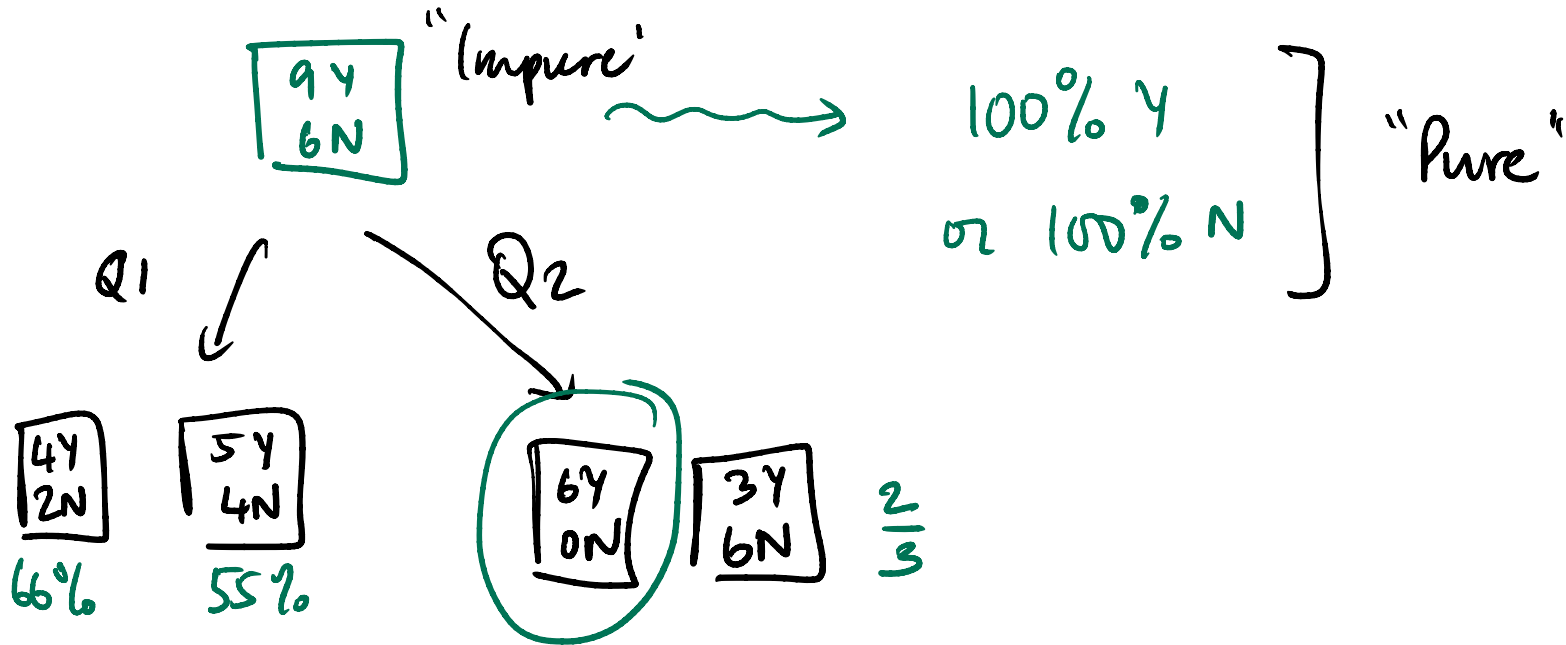 "Impure"
9 Y
6 N
100% Y
or 100% N
"Pure"
Q1
Q2
4Y
2N
66%
5 Y
4N
55%
6Y
0N
3Y
6N
2
3